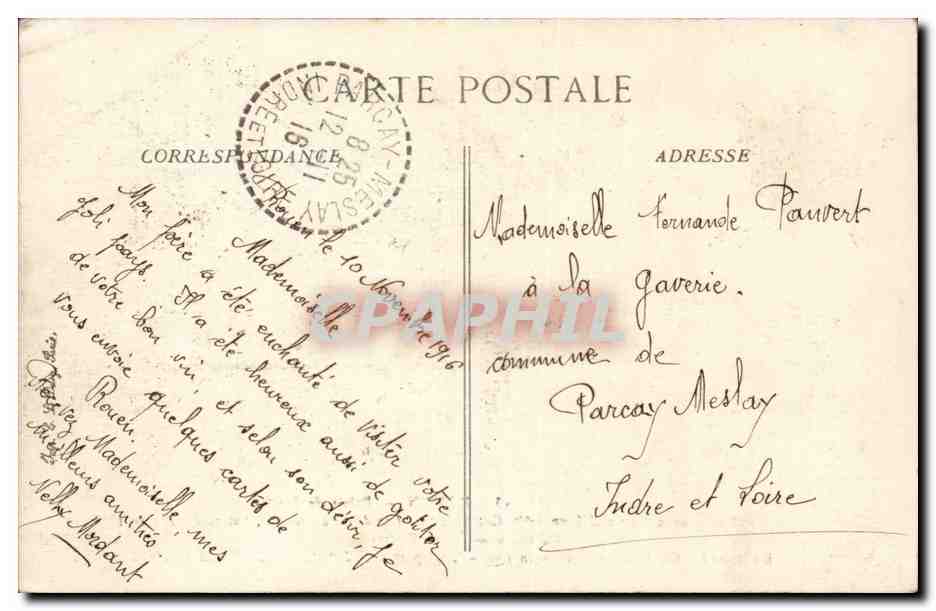 CARTE POSTALE
CORRESPONDANCE
ADRESSE
PARCAY-MESLAY
8 25
12 11
16
INDRE ET LOIRE
Rouen le 10 Novembre 1916
Mademoiselle
Mon frère a été enchanté de visiter votre
joli pays. Il a été heureux aussi de goûter
de votre bon vin, et selon son désir, je
vous envoie quelques cartes de
Rouen.
Recevez Mademoiselle, mes
meilleurs amitiés.
Nelly Mordant
Mademoiselle Fernande Pauvert
à la Gaverie.
commune de
Parcay Meslay
Indre et Loire
CPAPHIL